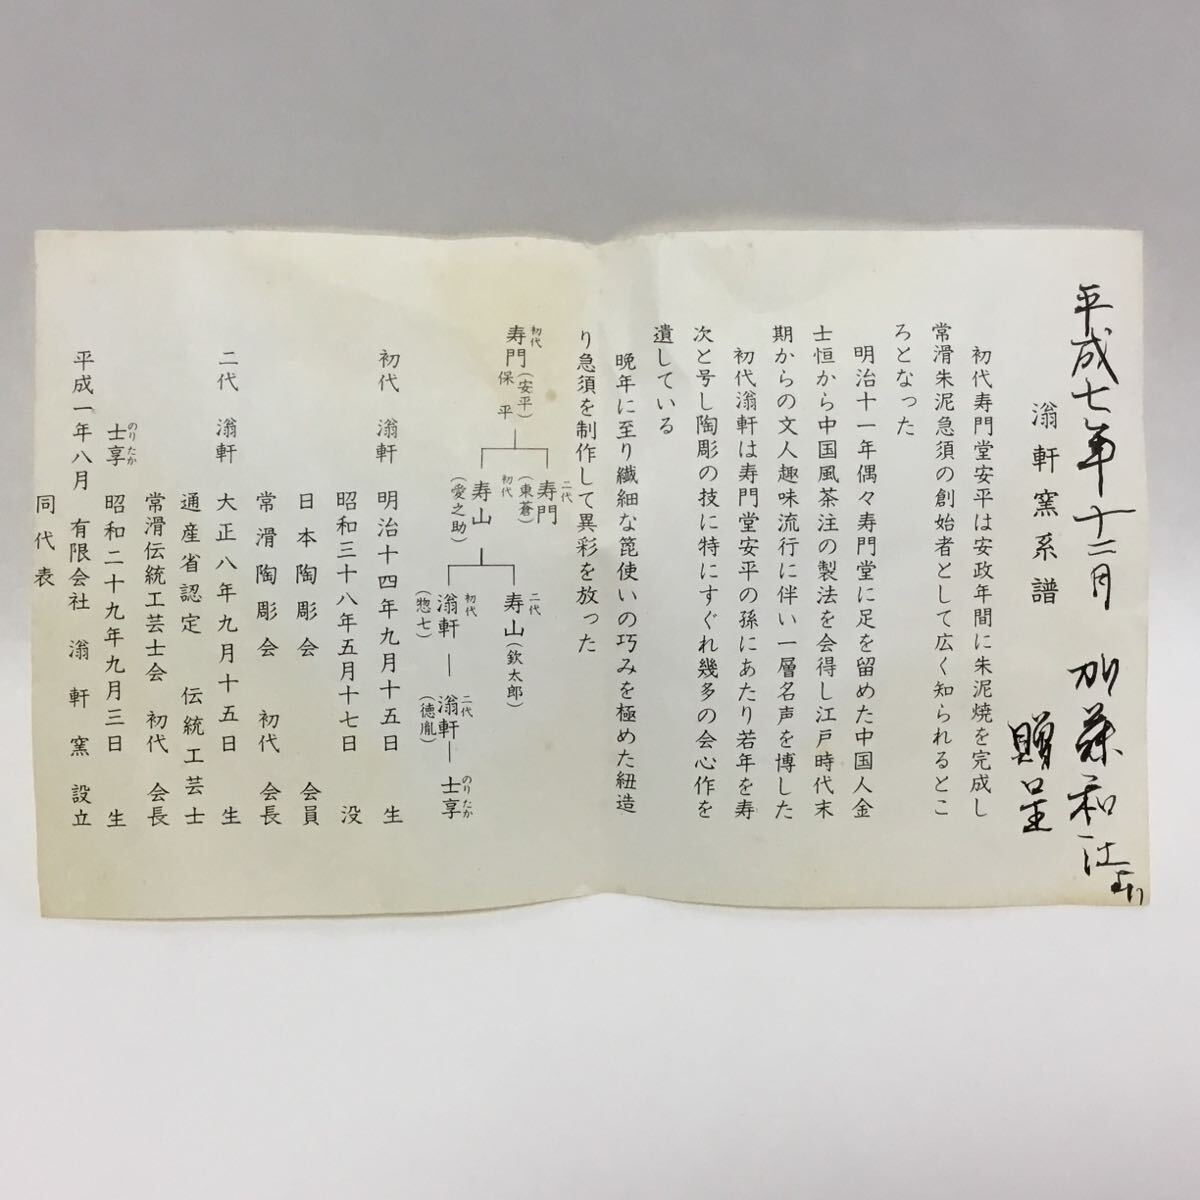 平成七年十二月 加藤和
贈呈
滃軒窯系譜
初代寿門堂安平は安政年間に朱泥焼を完成し
常滑朱泥急須の創始者として広く知られるとこ
ろとなった
明治十一年偶々寿門堂に足を留めた中国人金
士恒から中国風茶注の製法を会得し江戸時代末
期からの文人趣味流行に伴い一層名声を博した
初代滃軒は寿門堂安平の孫にあたり若年を寿
次と号し陶彫の技に特にすぐれ幾多の会心作を
遺している
晩年に至り繊細な箆使いの巧みを極めた紐造
り急須を制作して異彩を放った
初代 寿門(安平)
保平
二代 寿門(東蒼)
初代 寿山(愛之助)
二代 寿山(欽太郎)
初代 滃軒(惣七)
二代 滃軒(徳胤)
士享 のりたか
初代 滃軒 明治十四年九月十五日 生
昭和三十八年五月十七日 没
日本陶彫会 会員
常滑陶彫会 初代 会長
二代 滃軒 大正八年九月十五日 生
通産省認定 伝統工芸士
常滑伝統工芸士会 初代 会長
士享 のりたか 昭和二十九年九月三日 生
平成一年八月 有限会社 滃軒窯 設立
同代表